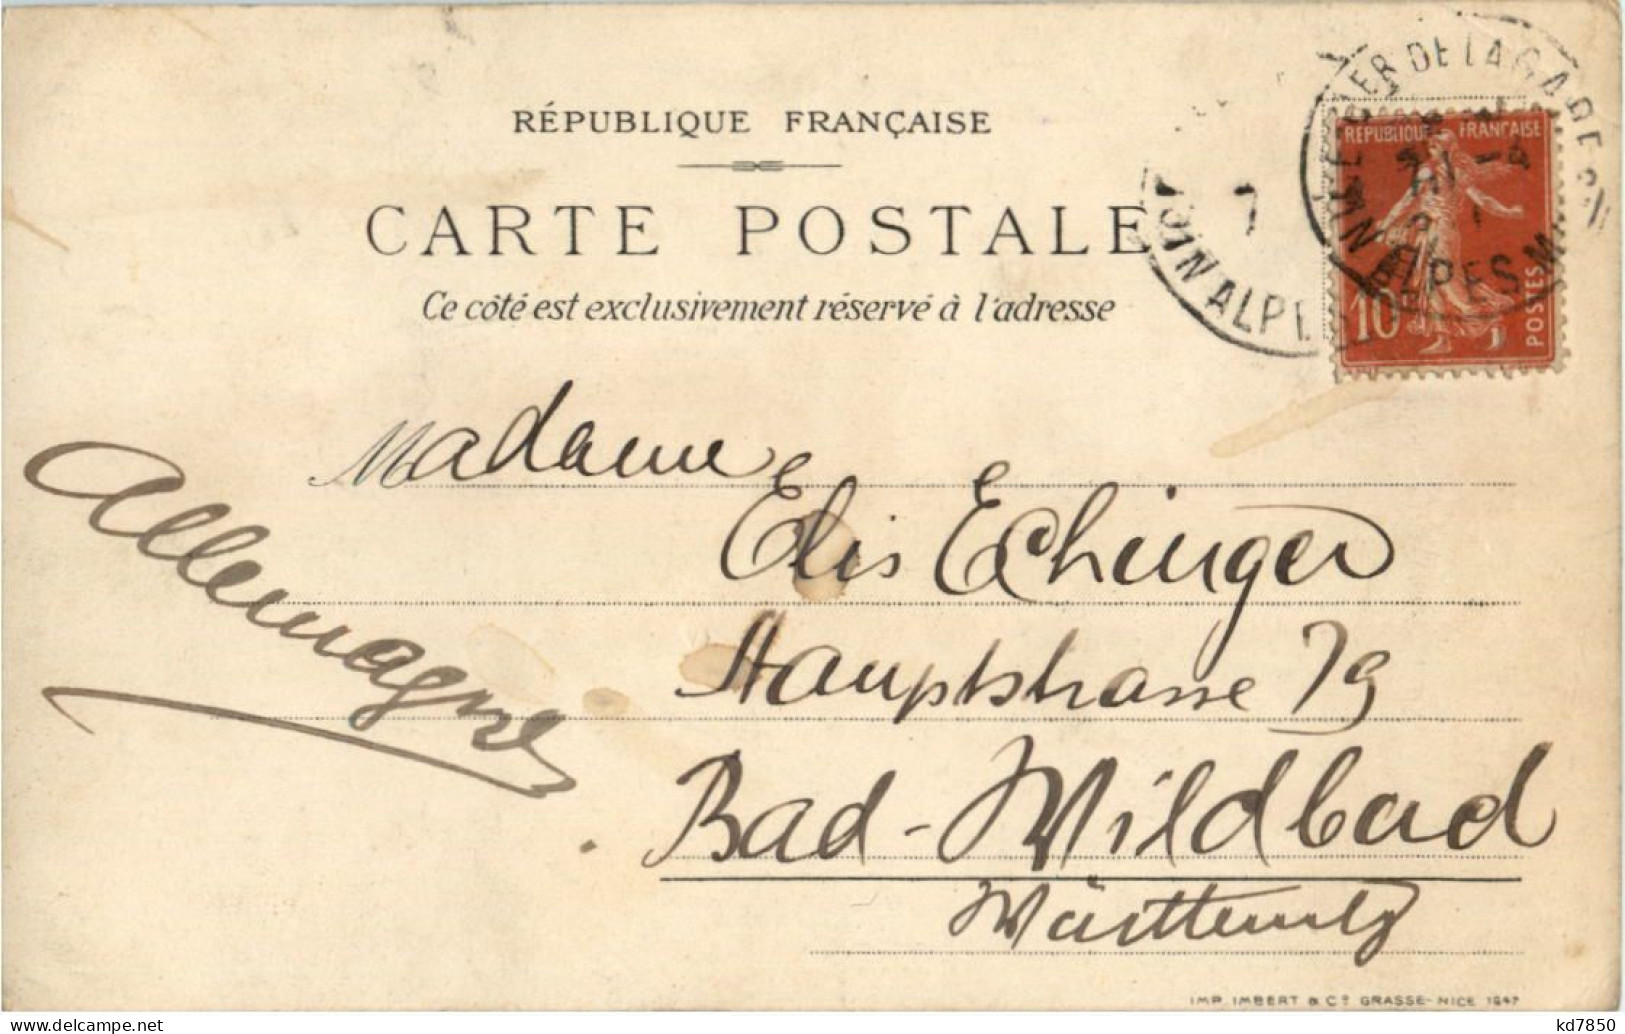 RÉPUBLIQUE FRANÇAISE
CARTE POSTALE
Ce côté est exclusivement réservé à l'adresse
RÉPUBLIQUE FRANÇAISE
10
POSTES
DE LA GARE
ALPES
ALPES
7
Madame
Elis Echinger
Hauptstrasse 79
Bad-Wildbad
Württembg
Allemagne
IMP. IMBERT & Cº GRASSE-NICE 1647
kd7850